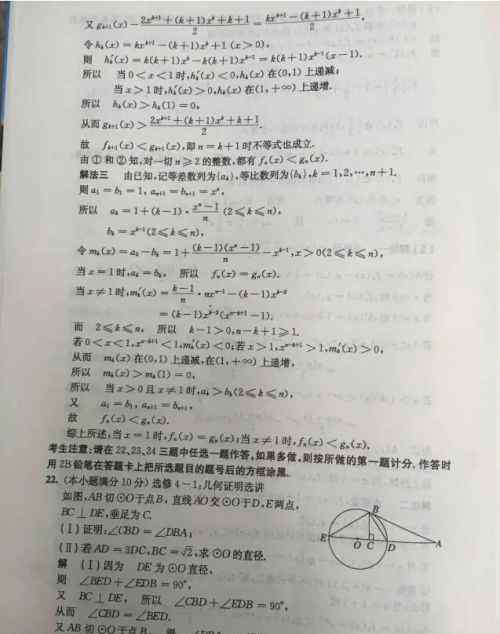 又 gₖ₊₁(x) - (2xᵏ⁺¹+(k+1)xᵏ+k+1)/2 = (kxᵏ⁺¹-(k+1)xᵏ+1)/2,
令 hₖ(x) = kxᵏ⁺¹-(k+1)xᵏ+1(x>0),
则 hₖ′(x) = k(k+1)xᵏ-k(k+1)xᵏ⁻¹ = k(k+1)xᵏ⁻¹(x-1).
所以 当0<x<1时,hₖ′(x)<0,hₖ(x)在(0,1)上递减;
当x>1时,hₖ′(x)>0,hₖ(x)在(1,+∞)上递增.
所以 hₖ(x)>hₖ(1)=0,
从而 gₖ₊₁(x) > (2xᵏ⁺¹+(k+1)xᵏ+k+1)/2.
故 fₖ₊₁(x)<gₖ₊₁(x),即n=k+1时不等式也成立.
由①和②知,对一切n⩾2的整数,都有fₙ(x)<gₙ(x).
解法三 由已知,记等差数列为{aₖ},等比数列为{bₖ},k=1,2,…,n+1.
则 a₁=b₁=1, aₙ₊₁=bₙ₊₁=xⁿ,
所以 aₖ=1+(k-1)·(xⁿ-1)/n (2⩽k⩽n),
bₖ=xᵏ⁻¹(2⩽k⩽n),
令 mₖ(x)=aₖ-bₖ=1+(k-1)(xⁿ-1)/n-xᵏ⁻¹,x>0(2⩽k⩽n),
当x=1时,aₖ=bₖ, 所以 fₙ(x)=gₙ(x).
当x≠1时,mₖ′(x)=(k-1)/n·nxⁿ⁻¹-(k-1)xᵏ⁻²
=(k-1)xᵏ⁻²(xⁿ⁻ᵏ⁺¹-1).
而 2⩽k⩽n, 所以 k-1>0,n-k+1⩾1.
若0<x<1,xⁿ⁻ᵏ⁺¹<1,mₖ′(x)<0;若x>1,xⁿ⁻ᵏ⁺¹>1,mₖ′(x)>0,
从而 mₖ(x)在(0,1)上递减,在(1,+∞)上递增,
所以 mₖ(x)>mₖ(1)=0,
所以 当x>0且x≠1时,aₖ>bₖ(2⩽k⩽n),
又 a₁=b₁,aₙ₊₁=bₙ₊₁,
故 fₙ(x)<gₙ(x).
综上所述,当x=1时,fₙ(x)=gₙ(x);当x≠1时,fₙ(x)<gₙ(x),
考生注意:请在22,23,24三题中任选一题作答,如果多做,则按所做的第一题计分.作答时
用2B铅笔在答题卡上把所选题目的题号后的方框涂黑.
22.(本小题满分10分)选修4-1:几何证明选讲
如图,AB切⊙O于点B,直线AO交⊙O于D,E两点,
BC⊥DE,垂足为C.
(Ⅰ)证明:∠CBD=∠DBA;
(Ⅱ)若AD=3DC,BC=√2,求⊙O的直径.
B
E
O
C
D
A
解 (Ⅰ)因为 DE为⊙O直径,
则 ∠BED+∠EDB=90°,
又 BC⊥DE, 所以 ∠CBD+∠EDB=90°,
从而 ∠CBD=∠BED.
又AB切⊙O于点B,